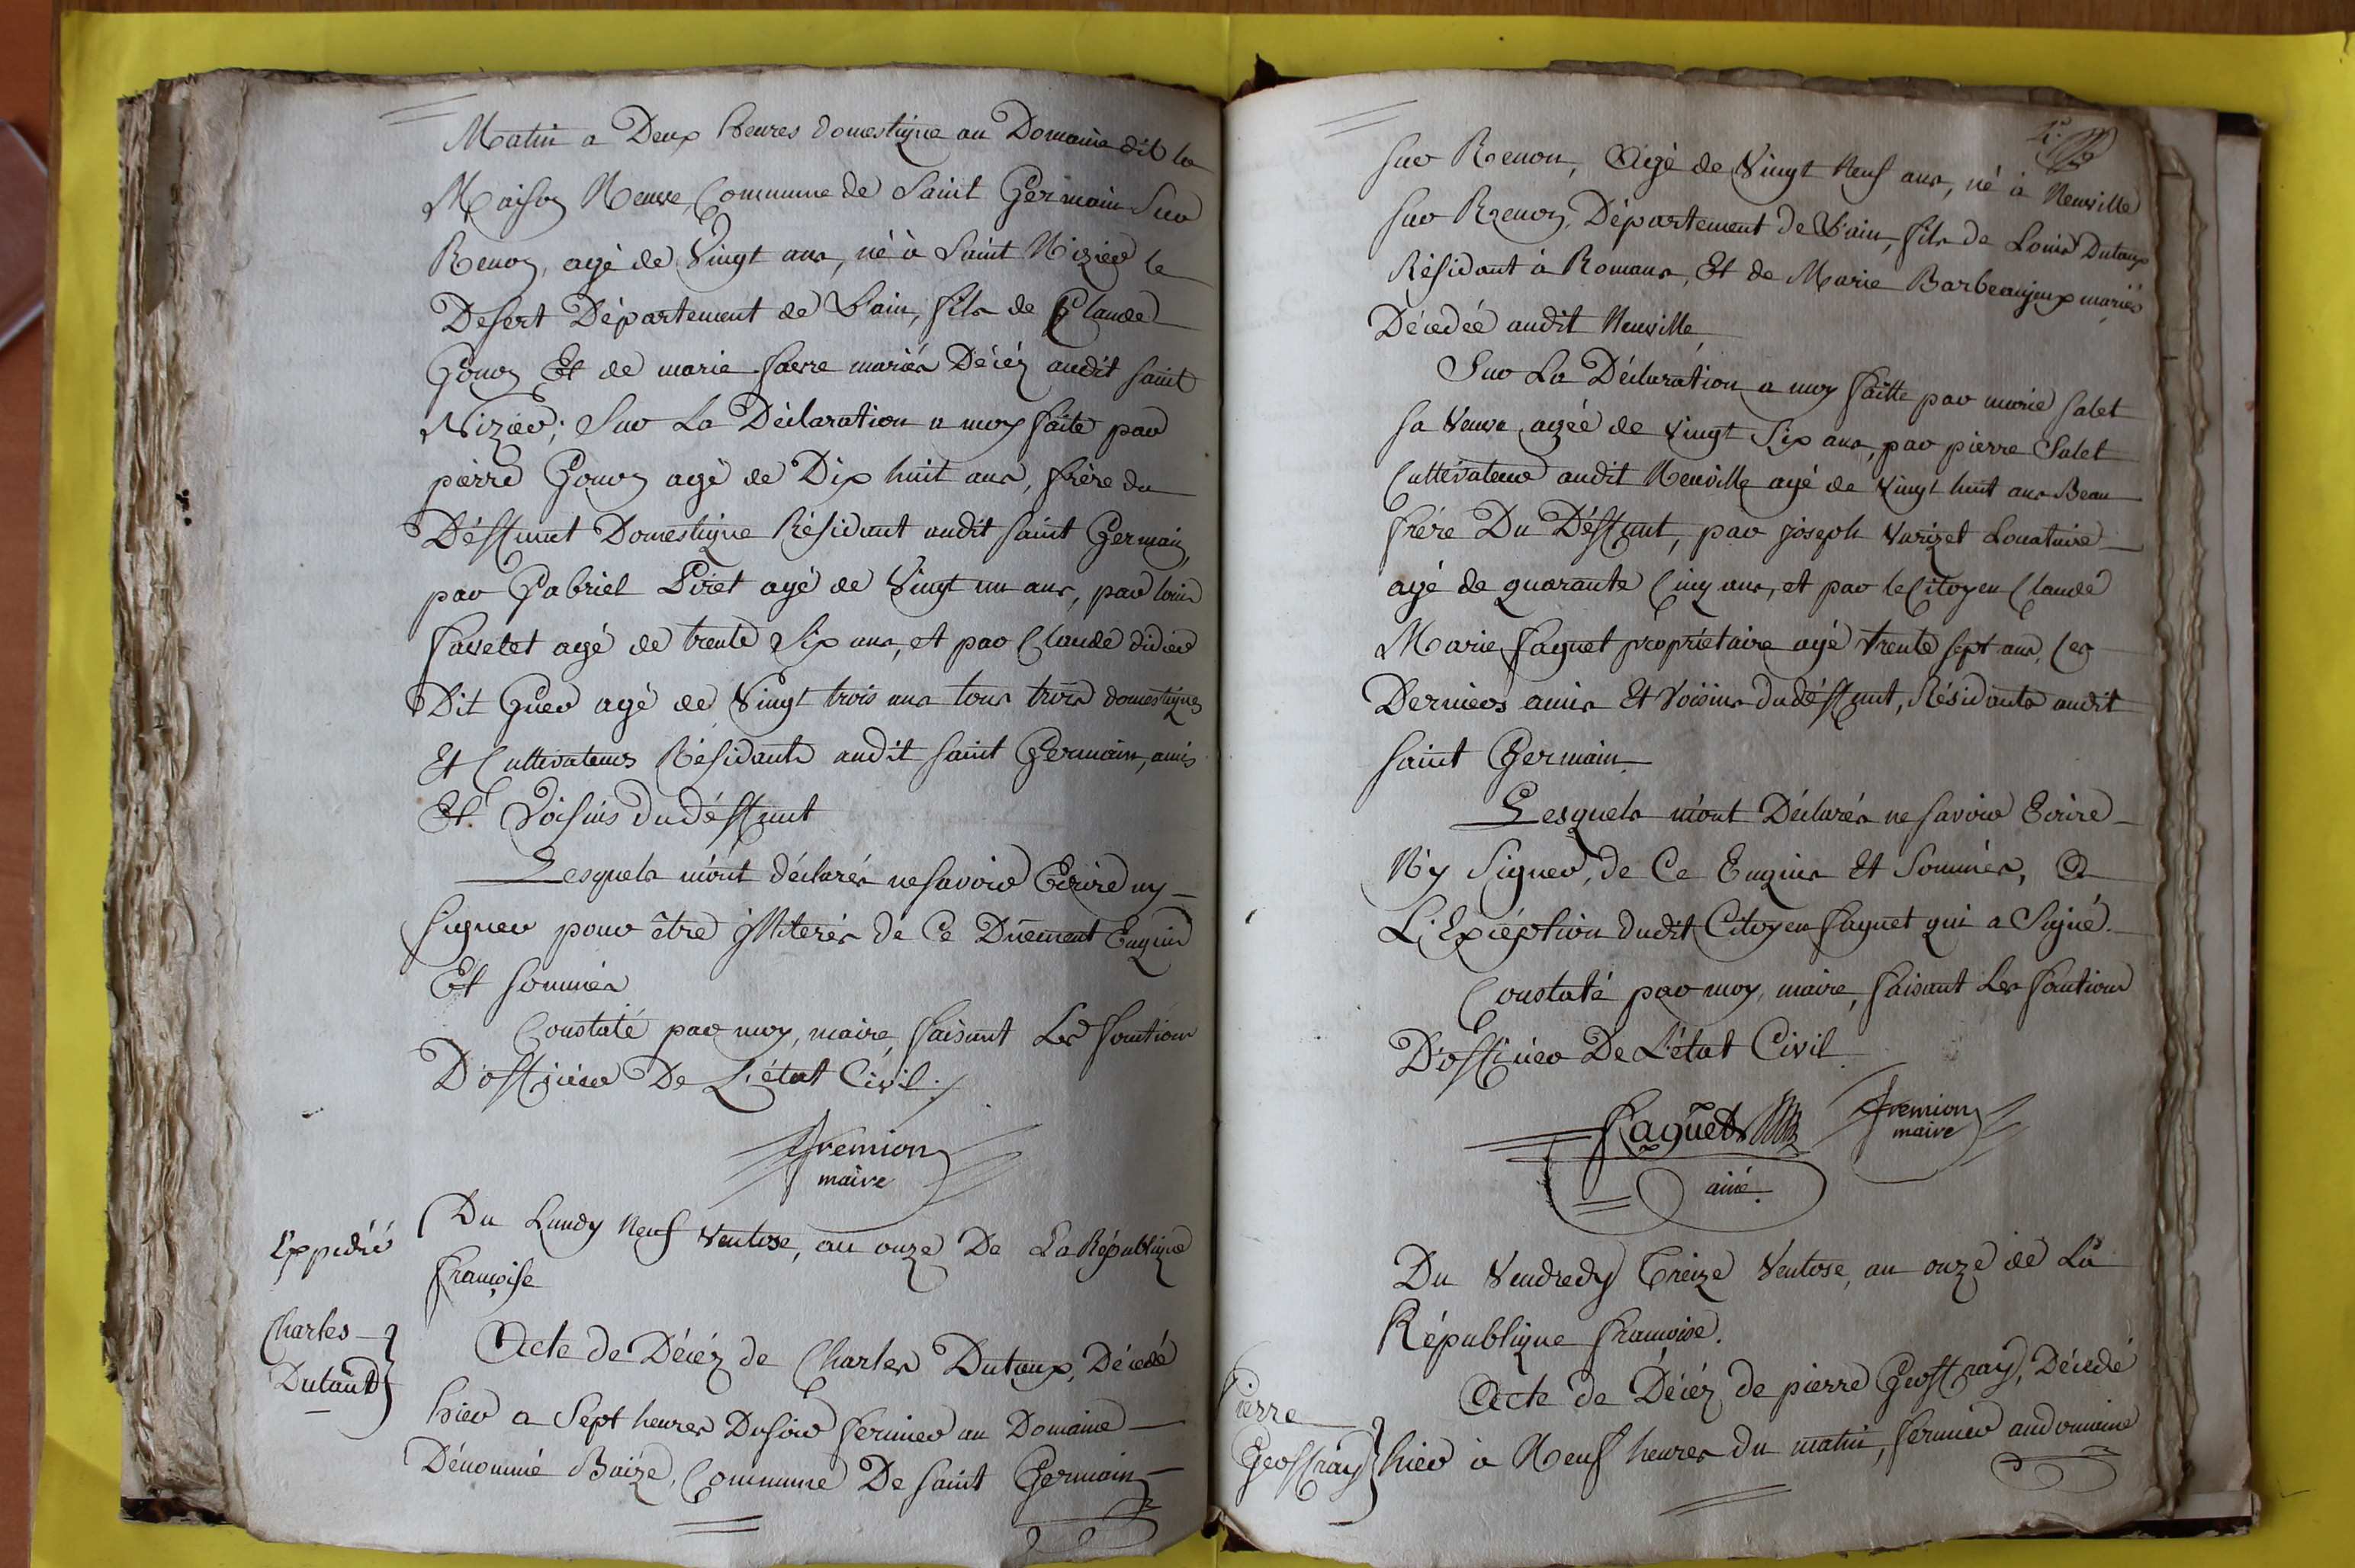 Matin a Deux heures domestique au Domaine dit la
Maison Neuve Commune de Saint Germain Sur
Renon, agé de Vingt ans, né à Saint Nizier le
Desert Département de L'ain, fils de Claude
Gonon Et de marie favre mariés Décéz audit saint
Nizier; Sur La Déclaration a moy faite par
pierre Gonon agé de Dix huit ans, frère du
Déffunt Domestique Résidant audit saint Germain,
par Gabriel Piret agé de Vingt un ans, par louis
favetet agé de trente Six ans, et par Claude didier
Dit Guer agé de Vingt trois ans tous trois domestiques
Et Cultivateurs Résidants audit saint Germain, amis
Et Voisins du déffunt
Lesquels m'ont déclarés ne savoir Ecrire ny
signer pour être illiterés de Ce Duement Enquis
Et sommés
Constaté par moy, maire, faisant Les fonctions
D'officier De L'état Civil.
fremion
maire
Expedié
Du Lundy Neuf Ventose, an onze De La République
françoise
Charles
Dutaud
Acte de Décéz de Charles Dutaux, Décedé
hier a Sept heures Du soir fermier au Domaine
Dénommé Baize, Commune De Saint Germain
sur Renon, Agé de Vingt Neuf ans, né à Neuville
sur Renon, Département de L'ain, fils de Louis Dutaux
Résidant à Romans, Et de Marie Barbeaujeux mariés
Décedée audit Neuville
Sur La Déclaration a moy faitte par marie salet
sa Veuve agée de Vingt Six ans, par pierre Salet
Cultivateur audit Neuville agé de Vingt huit ans Beau
frére Du Déffunt, par joseph Varizet Locataire
agé de quarante Cinq ans, et par le Citoyen Claude
Marie faguet propriétaire agé trente sept ans, Ces
Derniers amis Et Voisins du déffunt, Résidants audit
saint Germain.
Lesquels m'ont Déclarés ne savoir Ecrire
Ny Signer, de Ce Enquis Et Sommés, A
L'Exception dudit Citoyen faguet qui a Signé.
Constaté par moy, maire, faisant Les fonctions
D'officier De L'état Civil
faguet
ainé.
fremion
maire
Du Vendredy Treize Ventose, an onze de La
République françoise.
Pierre
Geoffray
Acte de Décéz de pierre Geoffray, Décedé
hier à Neuf heures du matin, fermier au domaine